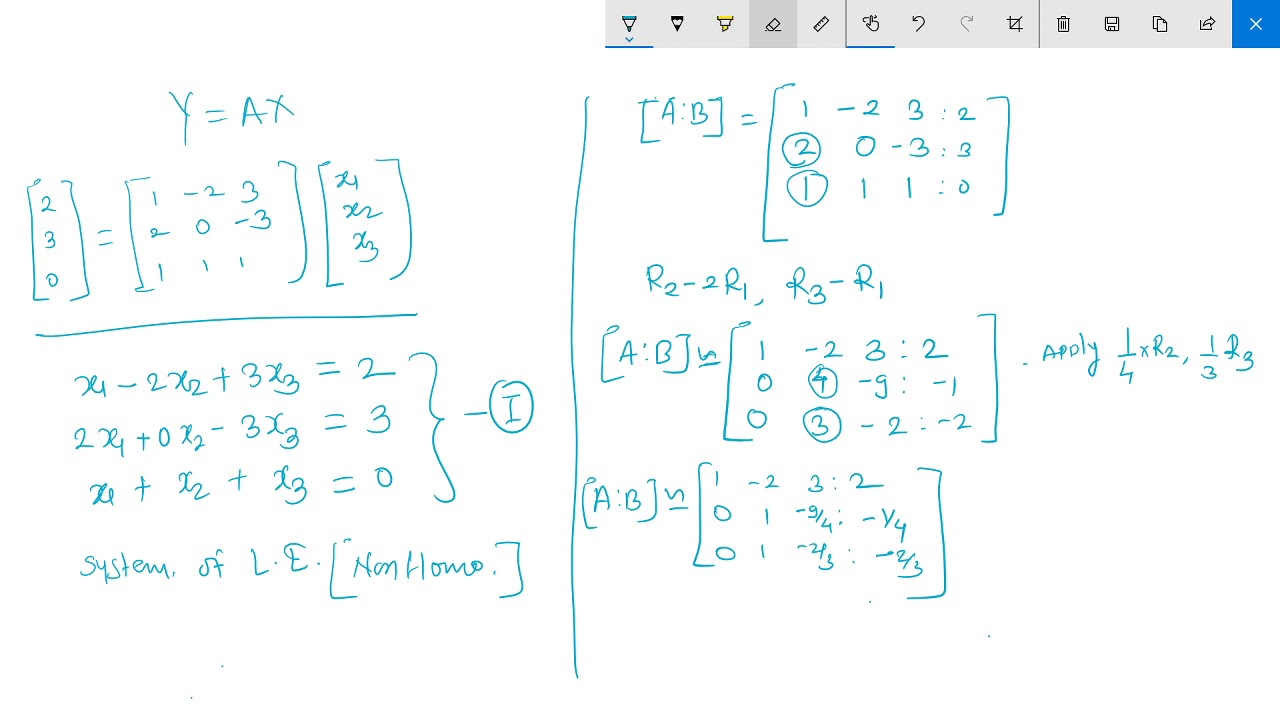 Y = AX
[2 3 0] = [1 -2 3
2 0 -3
1 1 1] [x1 x2 x3]
x1 - 2x2 + 3x3 = 2
2x1 + 0x2 - 3x3 = 3
x1 + x2 + x3 = 0
- I
system. of L.E. [Non Homo.]
[A:B] = [1 -2 3 : 2
2 0 -3 : 3
1 1 1 : 0]
R2 - 2R1, R3 - R1
[A:B] ≃ [1 -2 3 : 2
0 4 -9 : -1
0 3 -2 : -2]
. Apply 1/4 x R2, 1/3 R3
[A:B] ≃ [1 -2 3 : 2
0 1 -9/4 : -1/4
0 1 -2/3 : -2/3]